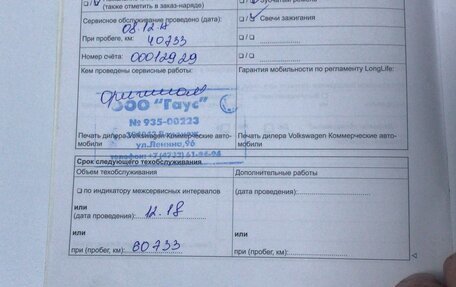 (также отметить в заказ-наряде)
Сервисное обслуживание проведено (дата):
08.12.
При пробеге, км: 40733
Номер счёта: 00012929
Кем проведены сервисные работы:
ООО "Гаус"
№ 935-00223
ул.Ленина,96
Печать дилера Volkswagen Коммерческие авто-
мобили
Зубчатый ремень
Свечи зажигания
Гарантия мобильности по регламенту LongLife:
Печать дилера Volkswagen Коммерческие авто-
мобили
Срок следующего техобслуживания
Объем техобслуживания
по индикатору межсервисных интервалов
или
(дата проведения): 12.18
или
при (пробег, км): 80733
Дополнительные работы
(дата проведения):
при (пробег, км):